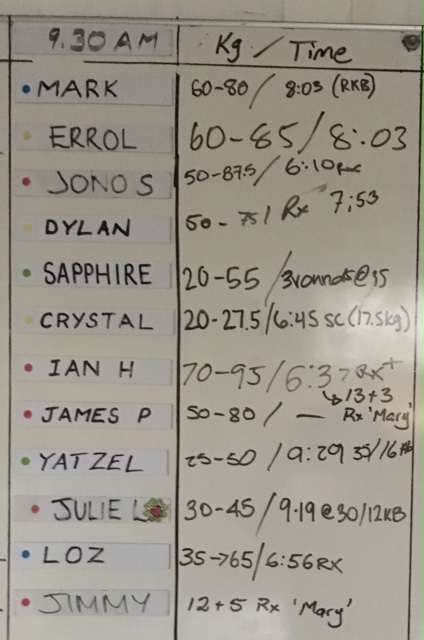 9.30 AM Kg / Time
MARK 60-80 / 8:03 (RKB)
ERROL 60-85 / 8:.03
JONO S 50-87.5 / 6:10 Rx
DYLAN 50-75 / Rx 7;53
SAPPHIRE 20-55 / 3rounds@35
CRYSTAL 20-27.5 / 6:45 SC (17.5kg)
IAN H 70-95 / 6:37 RX+
↳ 13+3
JAMES P 50-80 / — Rx 'Mary'
YATZEL 25-50 / 9:29 35/16KB
JULIE L 30-45 / 9.19 @ 30/12KB
LOZ 35→65 / 6:56 RX
JIMMY 12+5 Rx 'Mary'